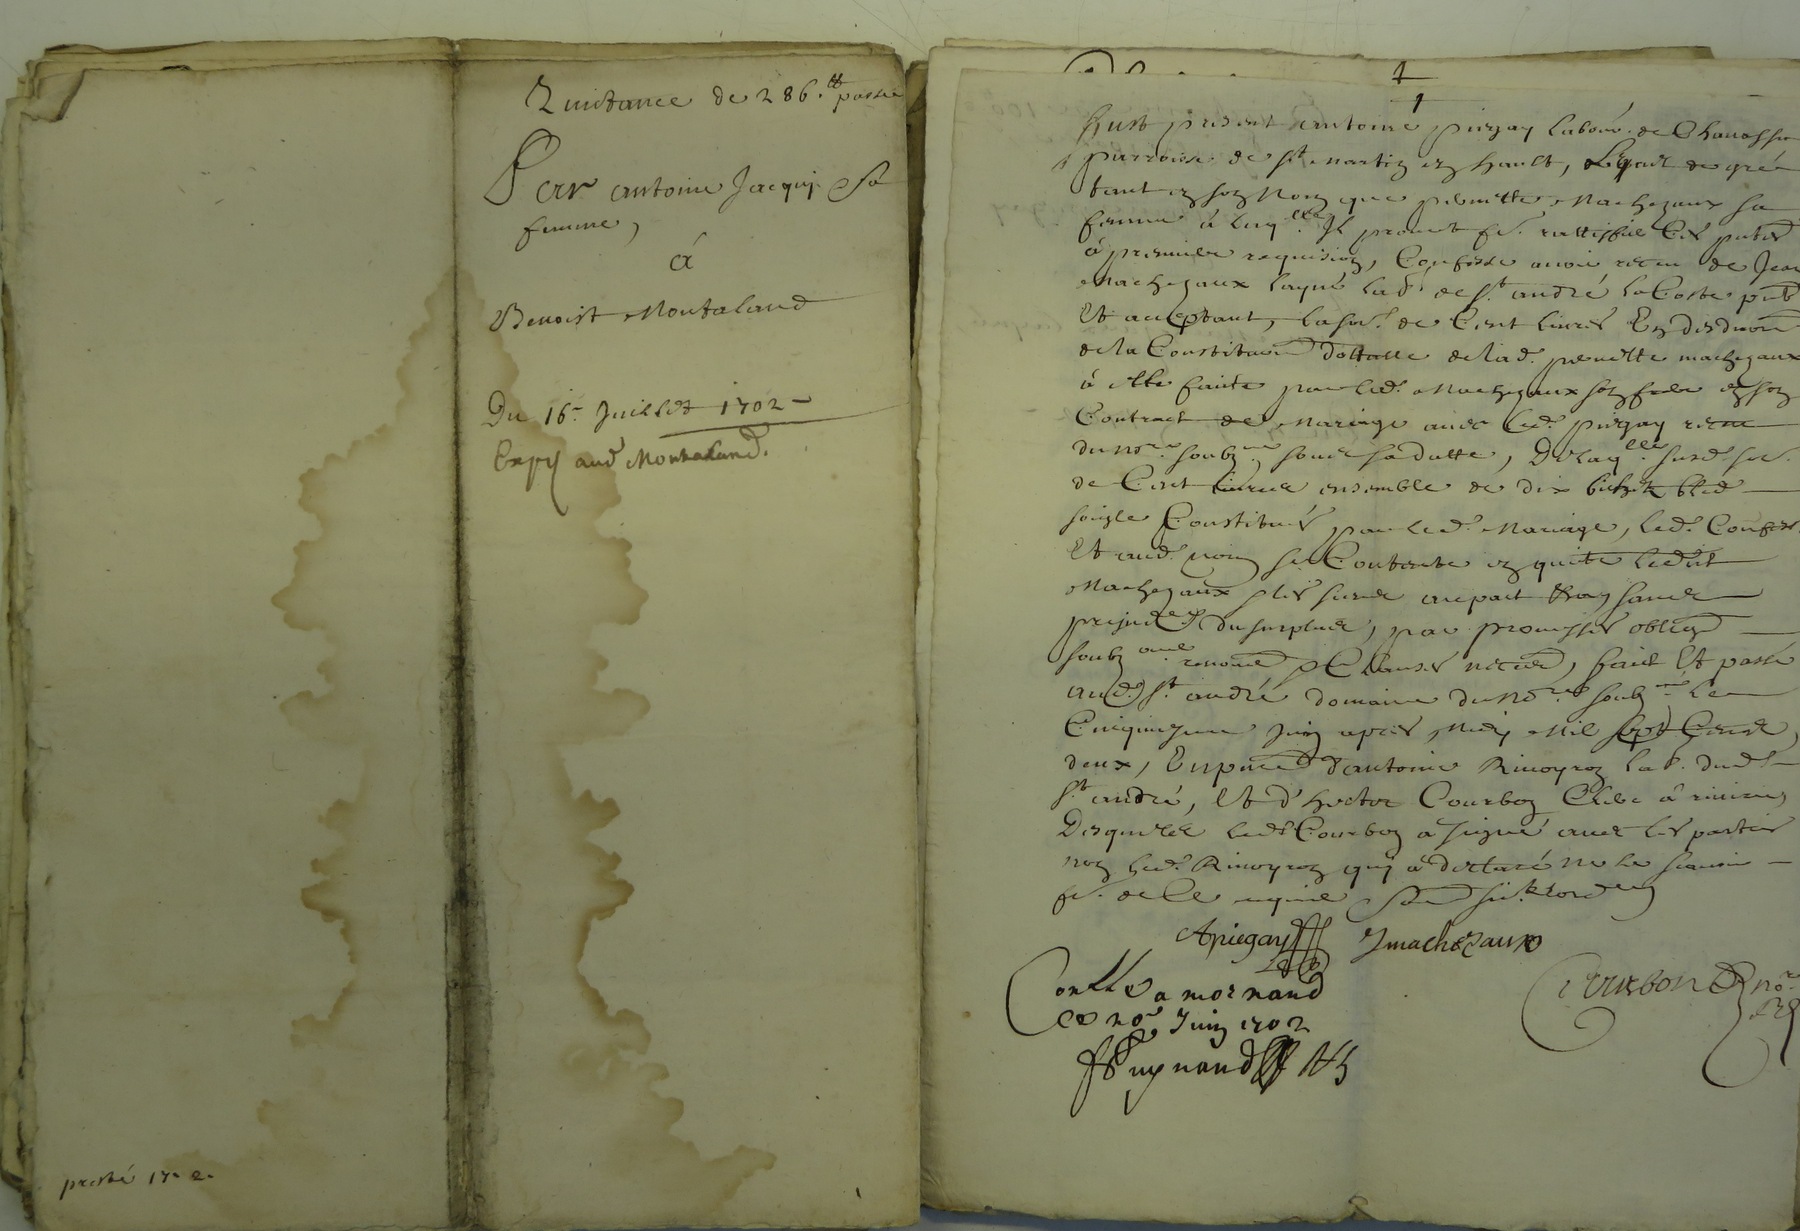 Quittance de 286.tt passée
Par antoine Jacqui & sa
femme,
à
Benoist Montaland
Du 16.e Juillet 1702
Expý aud. Montaland.
presté 1702
1
Fust présent antoine piegay labour. de Chavassu
parroisse de st. martin en hault, Lequel de gré
tant en son nom que pernette Machezaux sa
femme à laqlle. Il promet fe. rattiffier Ces pntes
à première requision, Confesse avoir receu de Jean
Machezaux layné lab. de st. andré la Coste pnt
Et acceptant, la som. de Cent livres En desduon
de la Constituon dottalle de lad. pernette machezaux
à elle faite par led. Machezaux son frere en son
Contract de Mariage avec led. piegay receu
du nore. soubz.né soubs sa datte, De laqlle. susd. so.
de Cent livres ensemble de dix bichets bled
soigle Constitués par led. Mariage, led. Confess.
Et aud. nom se Contente en quitte ledit
Machezaux & les siens avec pact
préjudce. du surplus, par promesses obligon
soubzons. renonon & Clauses necces, fait Et passé
aud. st. andré domaine du nore. soubz.né le
Cinquiesme Juin apres Midy Mil sept Cents
deux, En pnce d'antoine Rivoyron lab. dud.
st. andré, Et d'hector Courbon Clerc à riverie
Desquels led. Courbon a signé avec les parties
non led. Rivoyron qui a declaré ne le scavoir
fe. de Ce enquis
Apiegay Jmachezaux
Courbon nore.
Contllé a mornand
Ce noe. Juin 1702